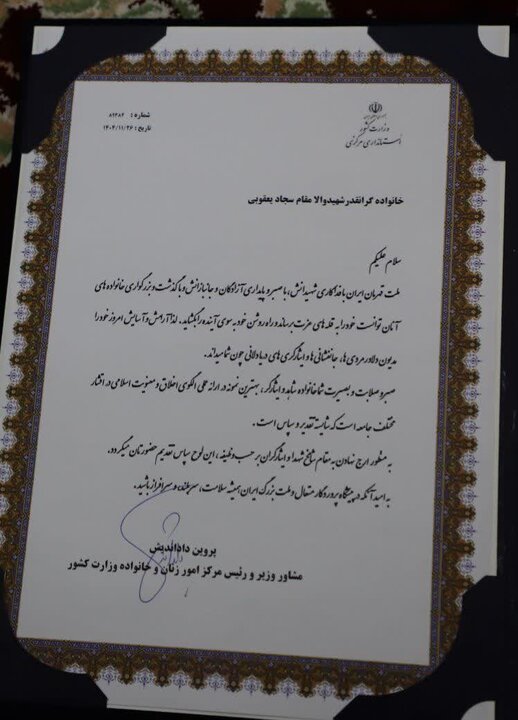 شماره : ۸۹۳۸۲
تاریخ : ۱۴۰۴/۱۱/۲۶
وزارت کشور
استانداری مرکزی
خانواده گرانقدر شهید والا مقام سجاد یعقوبی
سلام علیکم
ملت قهرمان ایران با فداکاری شهیدانش، با صبر و پایداری آزادگان و جانبازانش و با گذشت و بزرگواری خانواده های
آنان توانست خود را به قله های عزت برساند و راه روشن خود به سوی آینده را بگشاید. لذا آرامش و آسایش امروز خود را
مدیون دلاورمردی ها، جانفشانی ها و ایثارگری های دریادلانی چون شما میداند.
صبر و صلابت و بصیرت شما خانواده شاهد و ایثارگر، بهترین نمونه در ارائه عملی الگوی اخلاق و معنویت اسلامی در اقشار
مختلف جامعه است که شایسته تقدیر و سپاس است.
به منظور ارج نهادن به مقام شامخ شهدا و ایثارگران بر حسب وظیفه، این لوح سپاس تقدیم حضورتان میگردد.
به امید آنکه در پیشگاه پروردگار متعال و ملت بزرگ ایران همیشه سلامت، سربلند و سرافراز باشید.
پروین داداندیش
مشاور وزیر و رئیس مرکز امور زنان و خانواده وزارت کشور